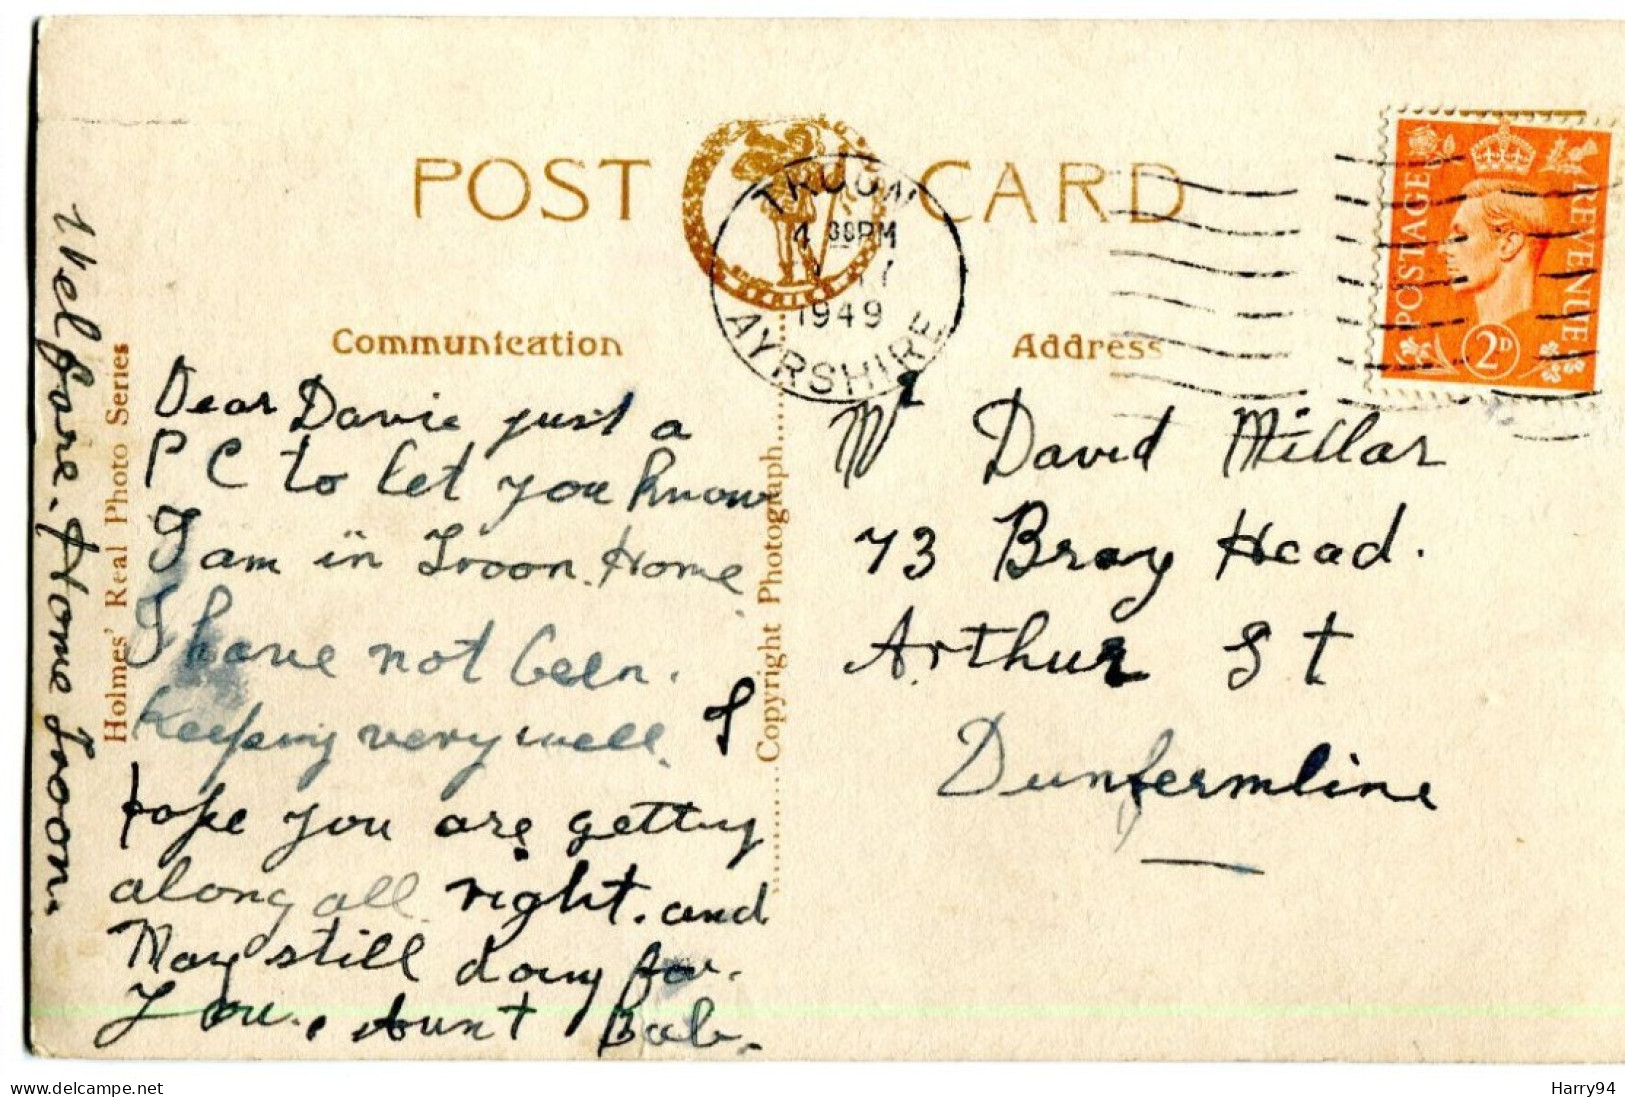 POST CARD
TROON
4 30PM
1949
AYRSHIRE
POSTAGE
REVENUE
2D
Communication
Address
Welfare. Home Troon.
Holmes' Real Photo Series
Dear Davie just a
P C to let you know
I am in Troon. Home
I have not been.
Keeping very well. I
hope you are getting
along all right. and
May still doing for.
You. Aunt Bab.
Copyright Photograph
Mr David Millar
73 Bray Head.
Arthur St
Dunfermline
delcampe.net
Harry94